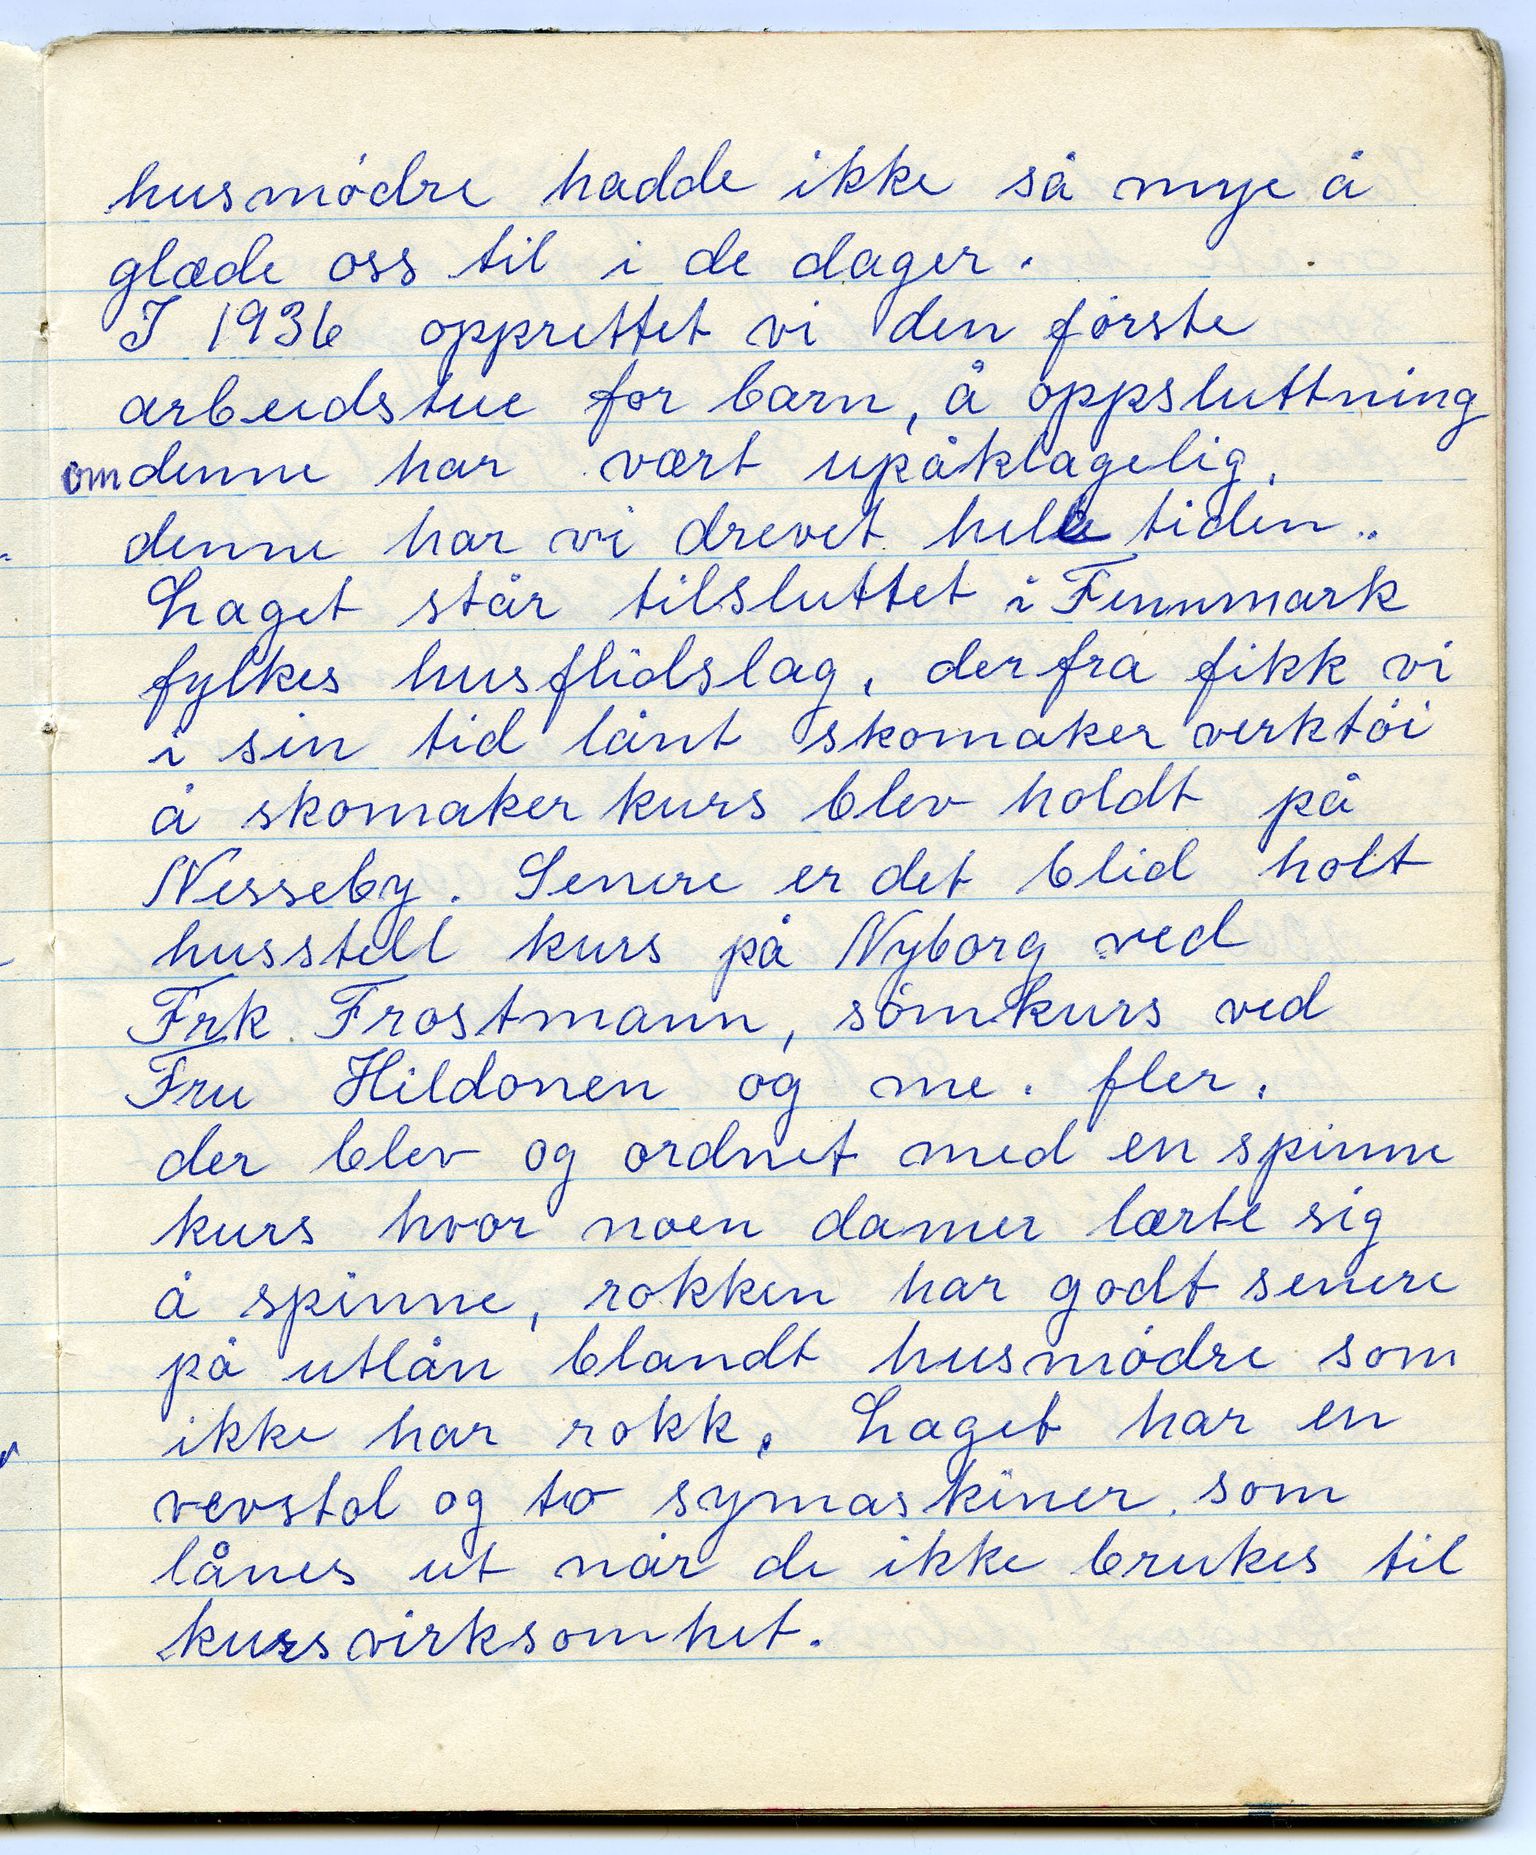 husmødre hadde ikke så mye å
glæde oss til i de dager.
I 1936 opprettet vi den første
arbeidstue for barn, å oppsluttning
om denne har vært upåklagelig.
denne har vi drevet hele tiden..
Laget står tilsluttet i Finnmark
fylkes husflidslag, der fra fikk vi
i sin tid lånt skomaker verktøi
å skomaker kurs blev holdt på
Nesseby. Senere er det blid holt
husstell kurs på Nyborg ved
Frk Frostmann, sømkurs ved
Fru Hildonen og me. fler.
der blev og ordnet med en spinne
kurs hvor noen damer lærte sig
å spinne, rokken har godt senere
på utlån blandt husmødre som
ikke har rokk. Laget har en
vevstol og to symaskiner. som
lånes ut når de ikke brukes til
kursvirksomhet.